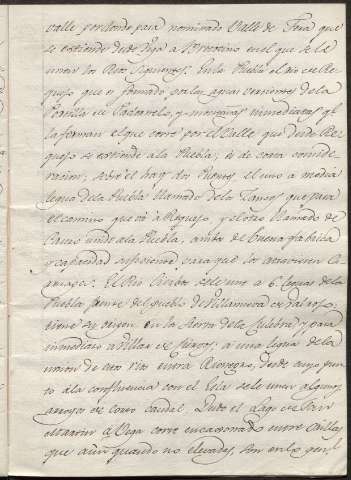 valle por donde para nominado Valle de Tera que
se estiende desde Vega a Bretocino en el que se le
unen los Rios siguientes. En la Puebla el rio de Re-
quejo que es formado por las aguas vertientes de la
Portilla de Padornelo, y montañas inmediatas qe
la forman el que corre por el Valle que desde Re-
quejo se estiende a la Puebla; es de corta conside-
racion; sobre el hay dos Puentes, el uno a media
legua de la Puebla llamado de las que para
el camino que va a Requejo, y el otro llamado de
unido a la Puebla, ambos de buena fabrica
y capacidad suficiente para que los atraviesen Ca-
rruages. El Rio se le une a 6 leguas de la
Puebla frente del pueblo de Villanueva de
tiene su origen en la Sierra de la Culebra y pasa
inmediato a Villar de a una legua de la
union de este Rio entra desde cuyo pun-
to a la confluencia con el Esla se le unen algunos
arroyos de corto caudal. Desde el Lago de San
Martin a Vega corre encajonado entre orillas
que aun quando no elevadas, son en lo genl